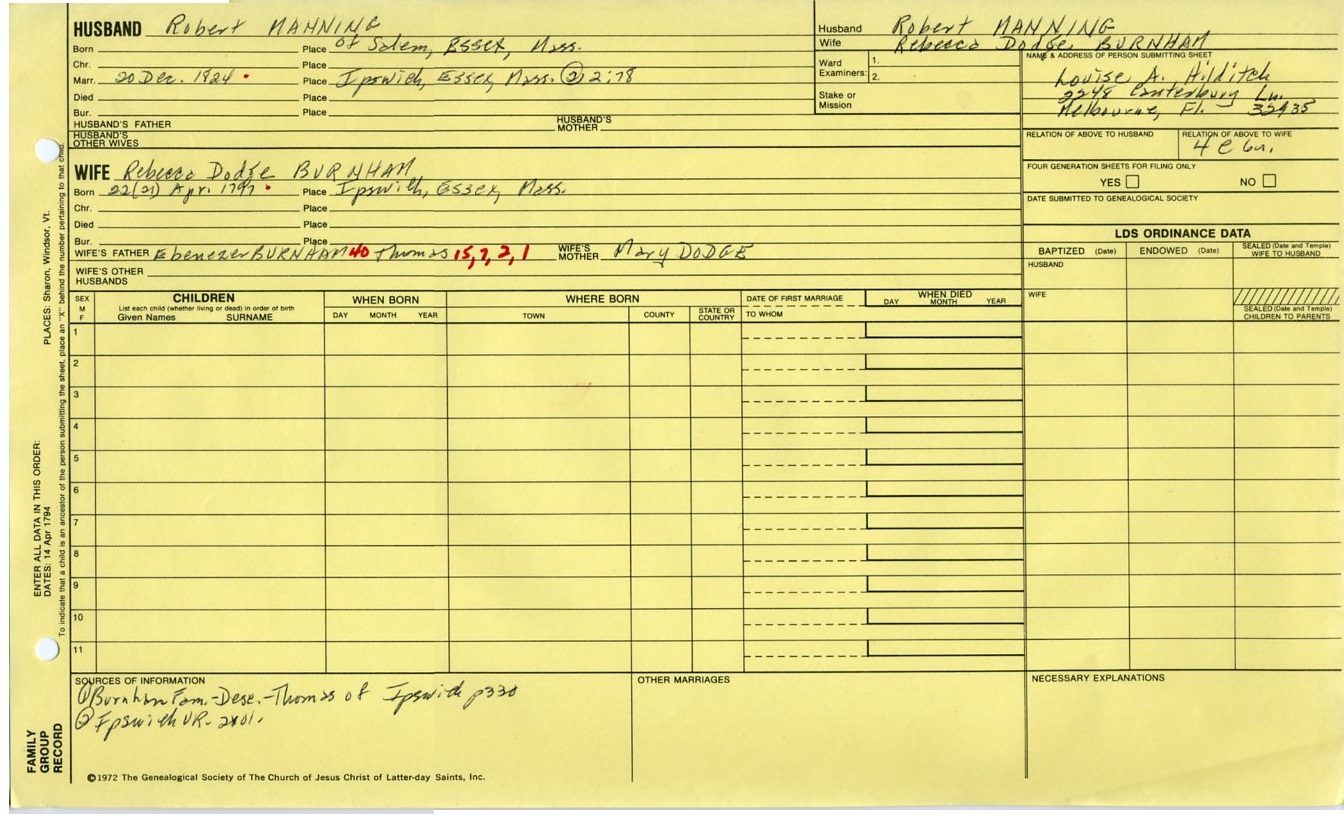 HUSBAND Robert MANNING
Born Place of Salem, Essex, Mass.
Chr. Place
Marr. 20 Dec. 1824 • Place Ipswich, Essex, Mass. ② 2:78
Died Place
Bur. Place
HUSBAND'S FATHER HUSBAND'S MOTHER
HUSBAND'S OTHER WIVES
WIFE Rebecca Dodge BURNHAM
Born 22(21) Apr. 1797 • Place Ipswich, Essex, Mass.
Chr. Place
Died Place
Bur. Place
WIFE'S FATHER Ebenezer BURNHAM 40 Thomas 15, 7, 2, 1 WIFE'S MOTHER Mary DODGE
WIFE'S OTHER HUSBANDS
Husband Robert MANNING
Wife Rebecca Dodge BURNHAM
Ward Examiners: 1.
2.
Stake or Mission
NAME & ADDRESS OF PERSON SUBMITTING SHEET
Louise A. Hilditch
2248 Canterbury Ln.
Melbourne, Fl. 32935
RELATION OF ABOVE TO HUSBAND RELATION OF ABOVE TO WIFE
FOUR GENERATION SHEETS FOR FILING ONLY
YES NO
DATE SUBMITTED TO GENEALOGICAL SOCIETY
LDS ORDINANCE DATA
BAPTIZED (Date) ENDOWED (Date) SEALED (Date and Temple) WIFE TO HUSBAND
HUSBAND
WIFE
SEALED (Date and Temple) CHILDREN TO PARENTS
SEX M F CHILDREN WHEN BORN WHERE BORN DATE OF FIRST MARRIAGE WHEN DIED
List each child (whether living or dead) in order of birth
Given Names SURNAME DAY MONTH YEAR TOWN COUNTY STATE OR COUNTRY TO WHOM DAY MONTH YEAR
1
2
3
4
5
6
7
8
9
10
11
SOURCES OF INFORMATION
① Burnham Fam.-Desc.-Thomas of Ipswich p330
② Ipswich VR.
OTHER MARRIAGES
NECESSARY EXPLANATIONS
©1972 The Genealogical Society of The Church of Jesus Christ of Latter-day Saints, Inc.
FAMILY GROUP RECORD
ENTER ALL DATA IN THIS ORDER:
DATES: 14 Apr 1794 PLACES: Sharon, Windsor, Vt.
To indicate that a child is an ancestor of the person submitting the sheet, place an "X" behind the number pertaining to that child.